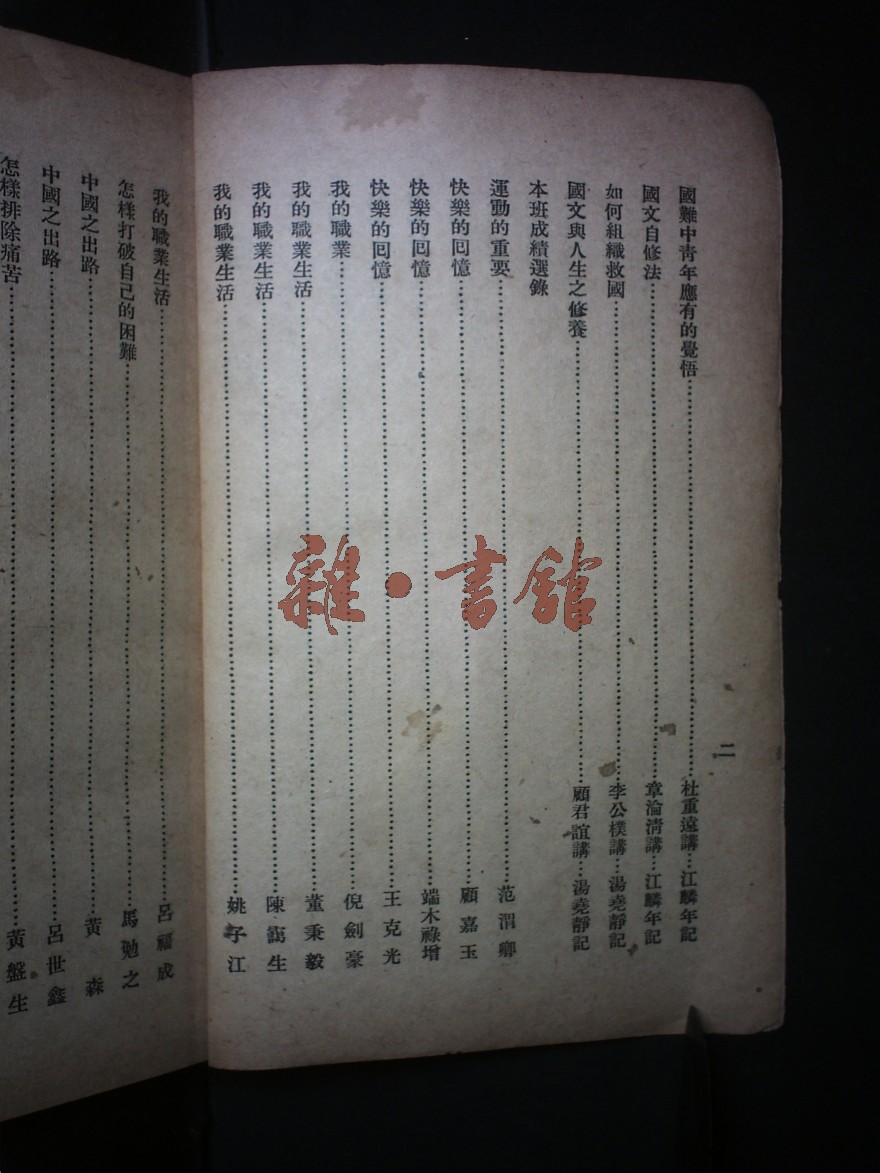 二
國難中青年應有的覺悟…杜重遠講…江麟年記
國文自修法…章淪淸講…江麟年記
如何組織救國…李公樸講…湯堯靜記
國文與人生之修養…顧君誼講…湯堯靜記
本班成績選錄
運動的重要…范渭卿
快樂的囘憶…顧嘉玉
快樂的囘憶…端木祿增
快樂的囘憶…王克光
我的職業…倪劍豪
我的職業生活…董秉毅
我的職業生活…陳靄生
我的職業生活…姚子江
我的職業生活…呂福成
怎樣打破自己的困難…馬勉之
中國之出路…黃森
中國之出路…呂世鑫
怎樣排除痛苦…黃盤生
雜·書館